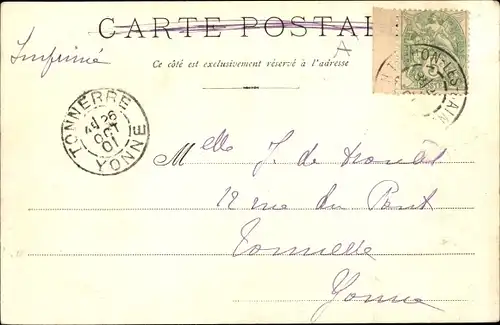 CARTE POSTALE
Imprimé
Ce côté est exclusivement réservé à l'adresse
TONNERRE
26
OCT
01
YONNE
Melle J. de
12 rue du Pont
Tonnerre
Yonne